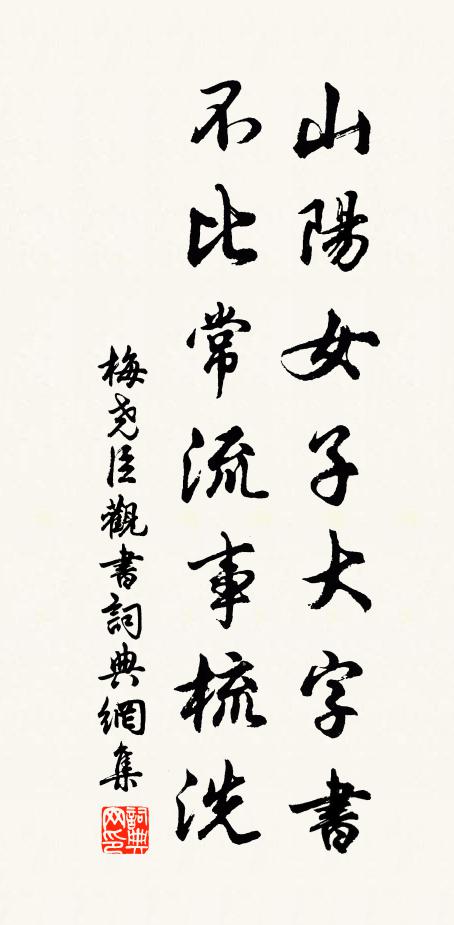 山陽女子大字書
不比常流事梳洗
梅尧臣觀書詞典網集
詞典网印